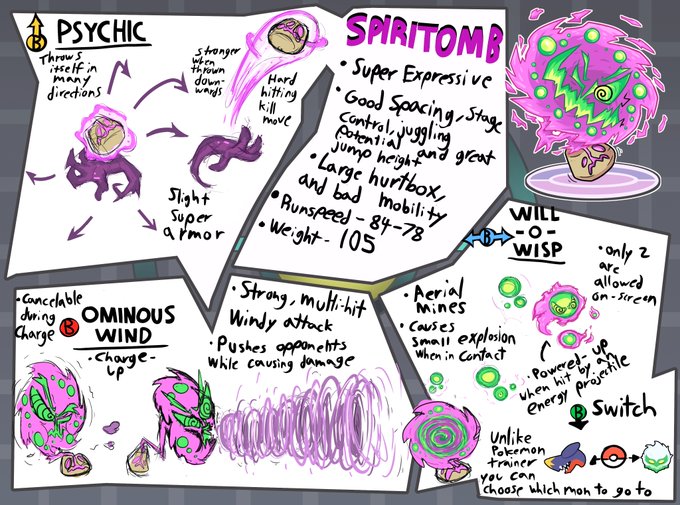 B PSYCHIC
Throws
itself in
many
directions
stronger
when
thrown
down-
wards
Hard
hitting
kill
move
Slight
super
armor
SPIRITOMB
• Super Expressive
• Good Spacing, Stage
control, juggling
potential and great
jump height
• Large hurtbox,
and bad mobility
• Runspeed - 84-78
• Weight - 105
• Cancelable
during
Charge
B OMINOUS
WIND
• Charge-
up
• Strong, multi-hit
Windy attack
• Pushes opponents
while causing damage
B WILL
-O-
WISP
• only 2
are
allowed
on-screen
• Aerial
mines
• Causes
small explosion
when in contact
• Powered-up
when hit by an
energy projectile
B Switch
Unlike
Pokemon
trainer
you can
choose which mon to go to